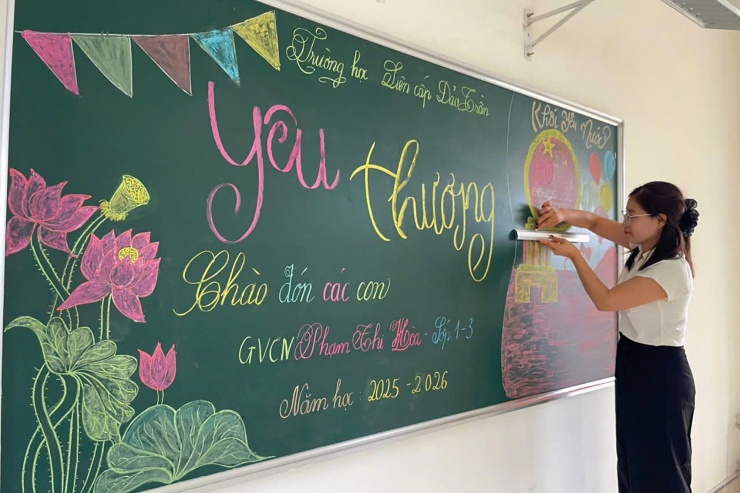 Trường học Liên cấp Đảo Trần
Yêu thương
Chào đón các con
GVCN Phạm Thị Hòa - Lớp 1-3
Năm học: 2025-2026
Khối Yêu Nước